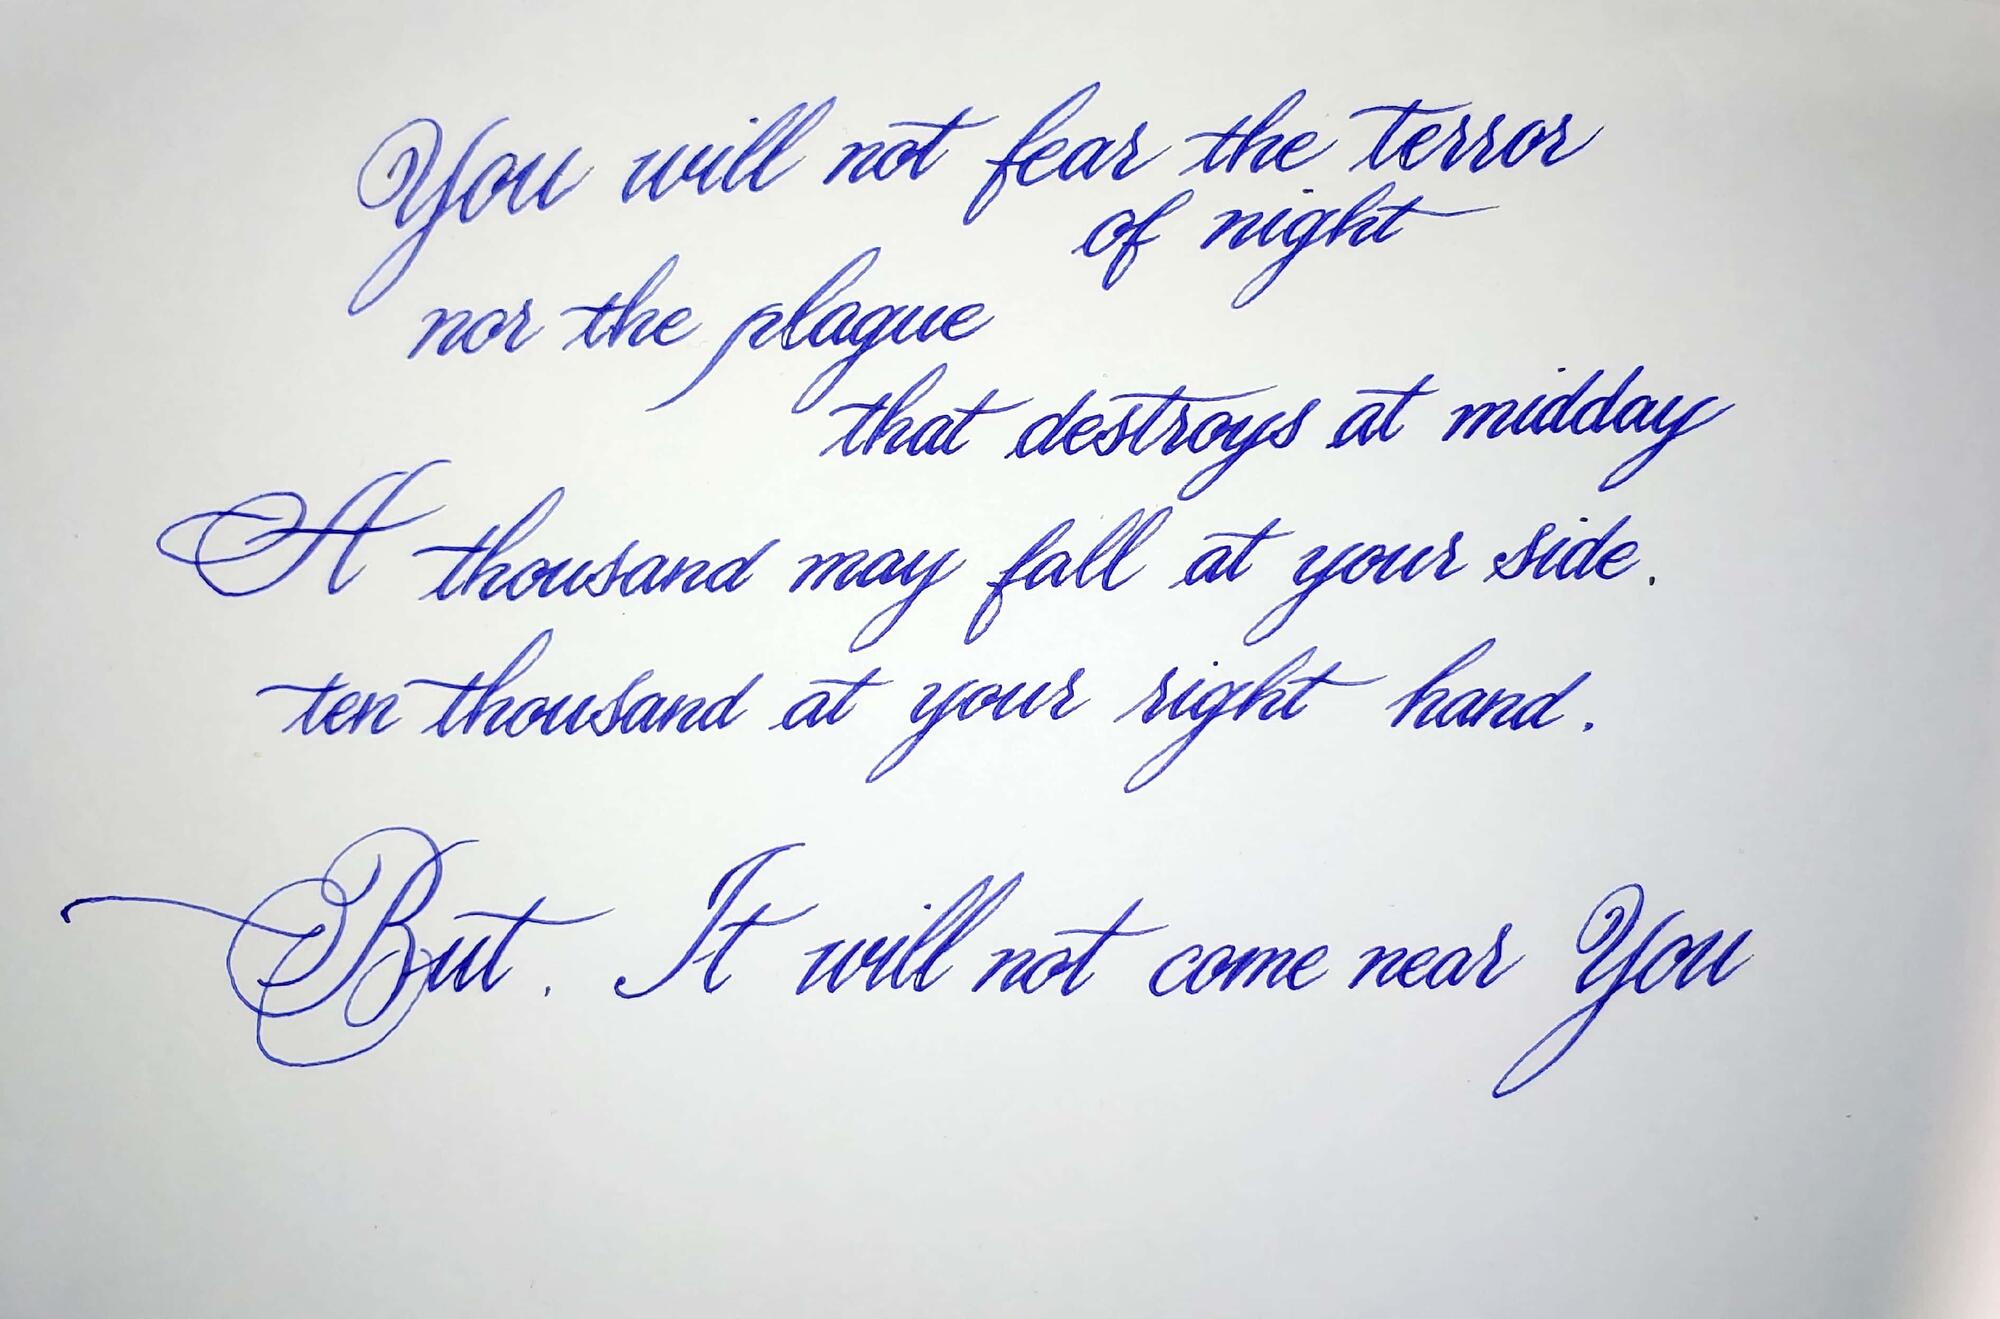 You will not fear the terror
of night
nor the plague
that destroys at midday
A thousand may fall at your side.
ten thousand at your right hand.
But. It will not come near You